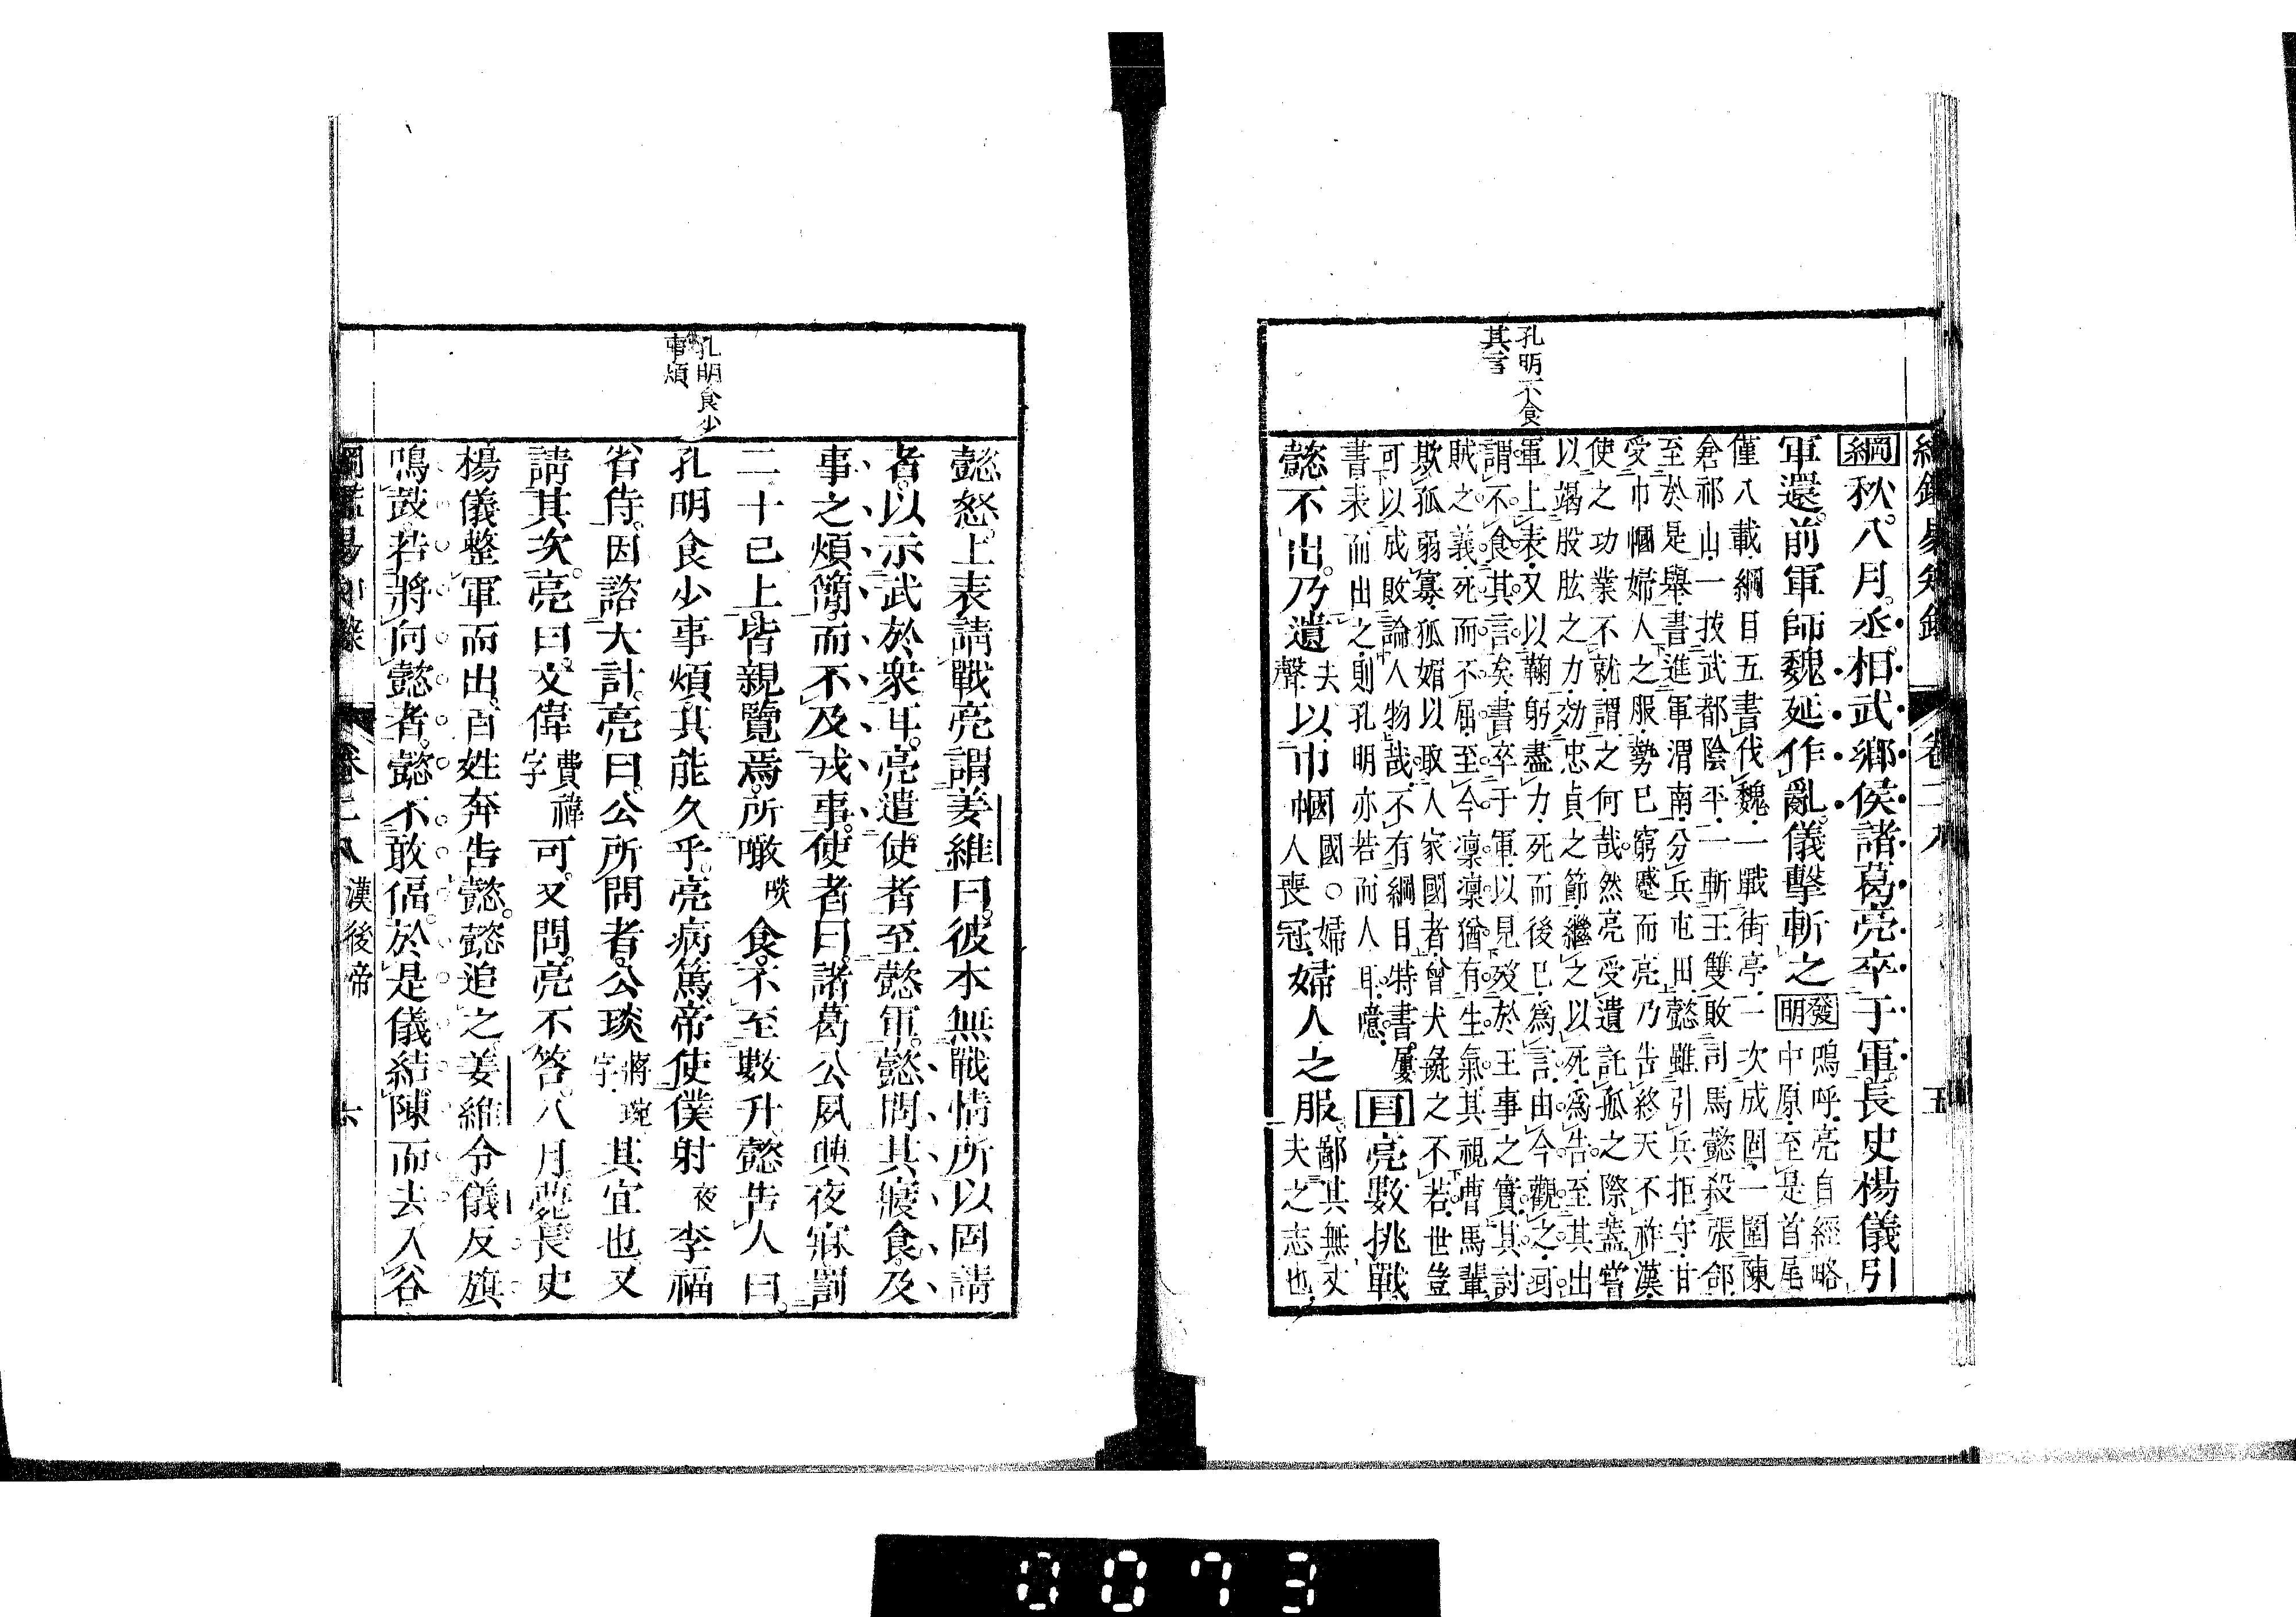 綱鑑易知錄 卷二八 五
孔明不食
其言
綱秋八月丞相武鄉侯諸葛亮卒于軍長史楊儀引
軍還前軍師魏延作亂儀擊斬之發明嗚呼亮自經略
中原至是首尾
僅八載綱目五書伐魏一戰街亭一次成固一圍陳
倉祁山一拔武都陰平一斬王雙敗司馬懿殺張郃
至於是舉書進軍渭南分兵屯田懿雖引兵拒守甘
受巾幗婦人之服勢已窮蹙而亮乃告終天不祚漢
使之功業不就謂之何哉然亮受遺託孤之際蓋嘗
以竭股肱之力効忠貞之節繼之以死為告至其出
軍上表又以鞠躬盡力死而後已為言由今觀之可
謂不食其言矣書卒于軍以見歿於王事之實其討
賊之義死而不屈至今凜凜猶有生氣其視曹馬輩
欺孤弱寡狐媚以取人家國者曾犬彘之不若世豈
可以成敗論人物哉不有綱目特書屢
書表而出之則孔明亦若而人耳噫目亮數挑戰
懿不出乃遺去聲以巾幗國○婦人喪冠婦人之服鄙其無丈夫之志也
孔明食少
事煩
懿怒上表請戰亮謂姜維曰彼本無戰情所以固請
者以示武於衆耳亮遣使者至懿軍懿問其寢食及
事之煩簡而不及戎事使者曰諸葛公夙興夜寐罰
二十已上皆親覽焉所噉啖食不至數升懿告人曰
孔明食少事煩其能久乎亮病篤帝使僕射夜李福
省侍因諮大計亮曰公所問者公琰蔣琬字其宜也又
請其次亮曰文偉費禕字可又問亮不答八月薨長史
楊儀整軍而出百姓奔告懿懿追之姜維令儀反旗
鳴鼓若將向懿者懿不敢偪於是儀結陳而去入谷
綱鑑易知錄 卷二八 漢後帝 六
0073